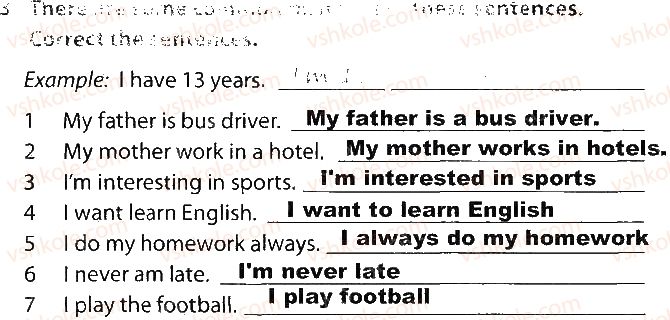 3 There are some common in these sentences.
Correct the sentences.
Example: I have 13 years. I'm
1 My father is bus driver. My father is a bus driver.
2 My mother work in a hotel. My mother works in hotels.
3 I'm interesting in sports. I'm interested in sports
4 I want learn English. I want to learn English
5 I do my homework always. I always do my homework
6 I never am late. I'm never late
7 I play the football. I play football